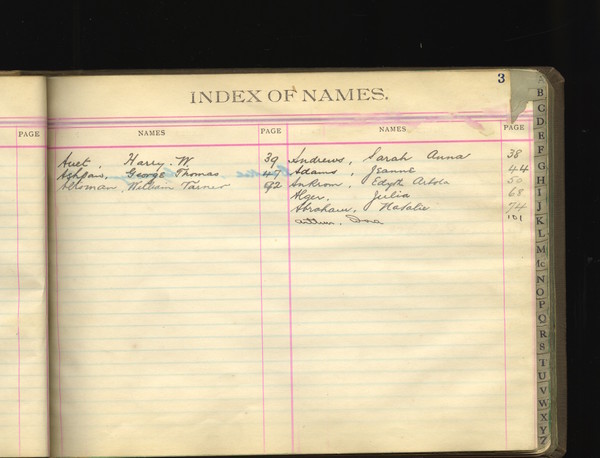 3
INDEX OF NAMES.
PAGE
NAMES PAGE
NAMES PAGE
Auet, Harry W. 39
George Thomas 47
William Turner 92
Andrews, Sarah Anna 38
Adams, Jeanne 44
Ankrom, Edyth 50
Alger, Julia 68
Abraham, Natalie 74
101
A
B
C
D
E
F
G
H
I
J
K
L
M
Mc
N
O
P
Q
R
S
T
U
V
W
X Y Z